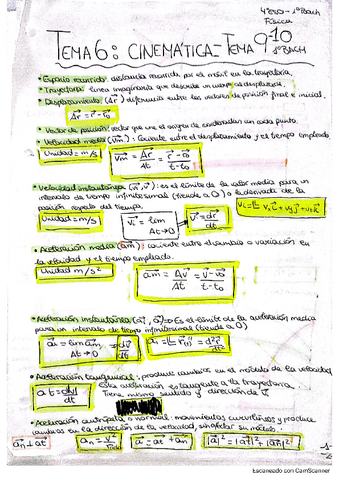 4ºESO - 1ºBach
Física
TEMA 6: CINEMÁTICA - TEMA 9-10
1ºBACH
• Espacio recorrido: distancia recorrida por el móvil en la trayectoria.
• Trayectoria: línea imaginaria que describe un cuerpo al desplazarse.
• Desplazamiento (Δr) diferencia entre los vectores de posición final e inicial.
Δr = r - r₀
• Vector de posición: vector que une el origen de coordenadas con cada punto.
• Velocidad media (Vm): Cociente entre el desplazamiento y el tiempo empleado
Unidad = m/s
Vm = Δr/Δt = r - r₀/t - t₀
• Velocidad instantánea (v): es el límite de la velocidad media para un
intervalo de tiempo infinitesimal (tiende a 0) o la derivada de la
posición respeto del tiempo.
Unidad = m/s
v = lim Δt→0
v = dr/dt
vx i + vy j + vz k
• Aceleración media (am): cociente entre el cambio o variación en
la velocidad y el tiempo empleado.
Unidad m/s²
am = Δv/Δt = v - v₀/t - t₀
• Aceleración instantánea (a) => Es el límite de la aceleración media
para un intervalo de tiempo infinitesimal (tiende a 0)
a = lim am Δt→0 = dv/dt
• Aceleración tangencial: produce cambios en el módulo de la velocidad
at = dv/dt
Esta aceleración es tangente a la trayectoria.
Tiene mismo sentido y dirección de v.
• Aceleración centrípeta o normal: movimientos curvilíneos y produce
cambios en la dirección de la velocidad, sin afectar su módulo.
an ⊥ at
a = at + an
|a|² = |at|² + |an|²
-1-
Escaneado con CamScanner